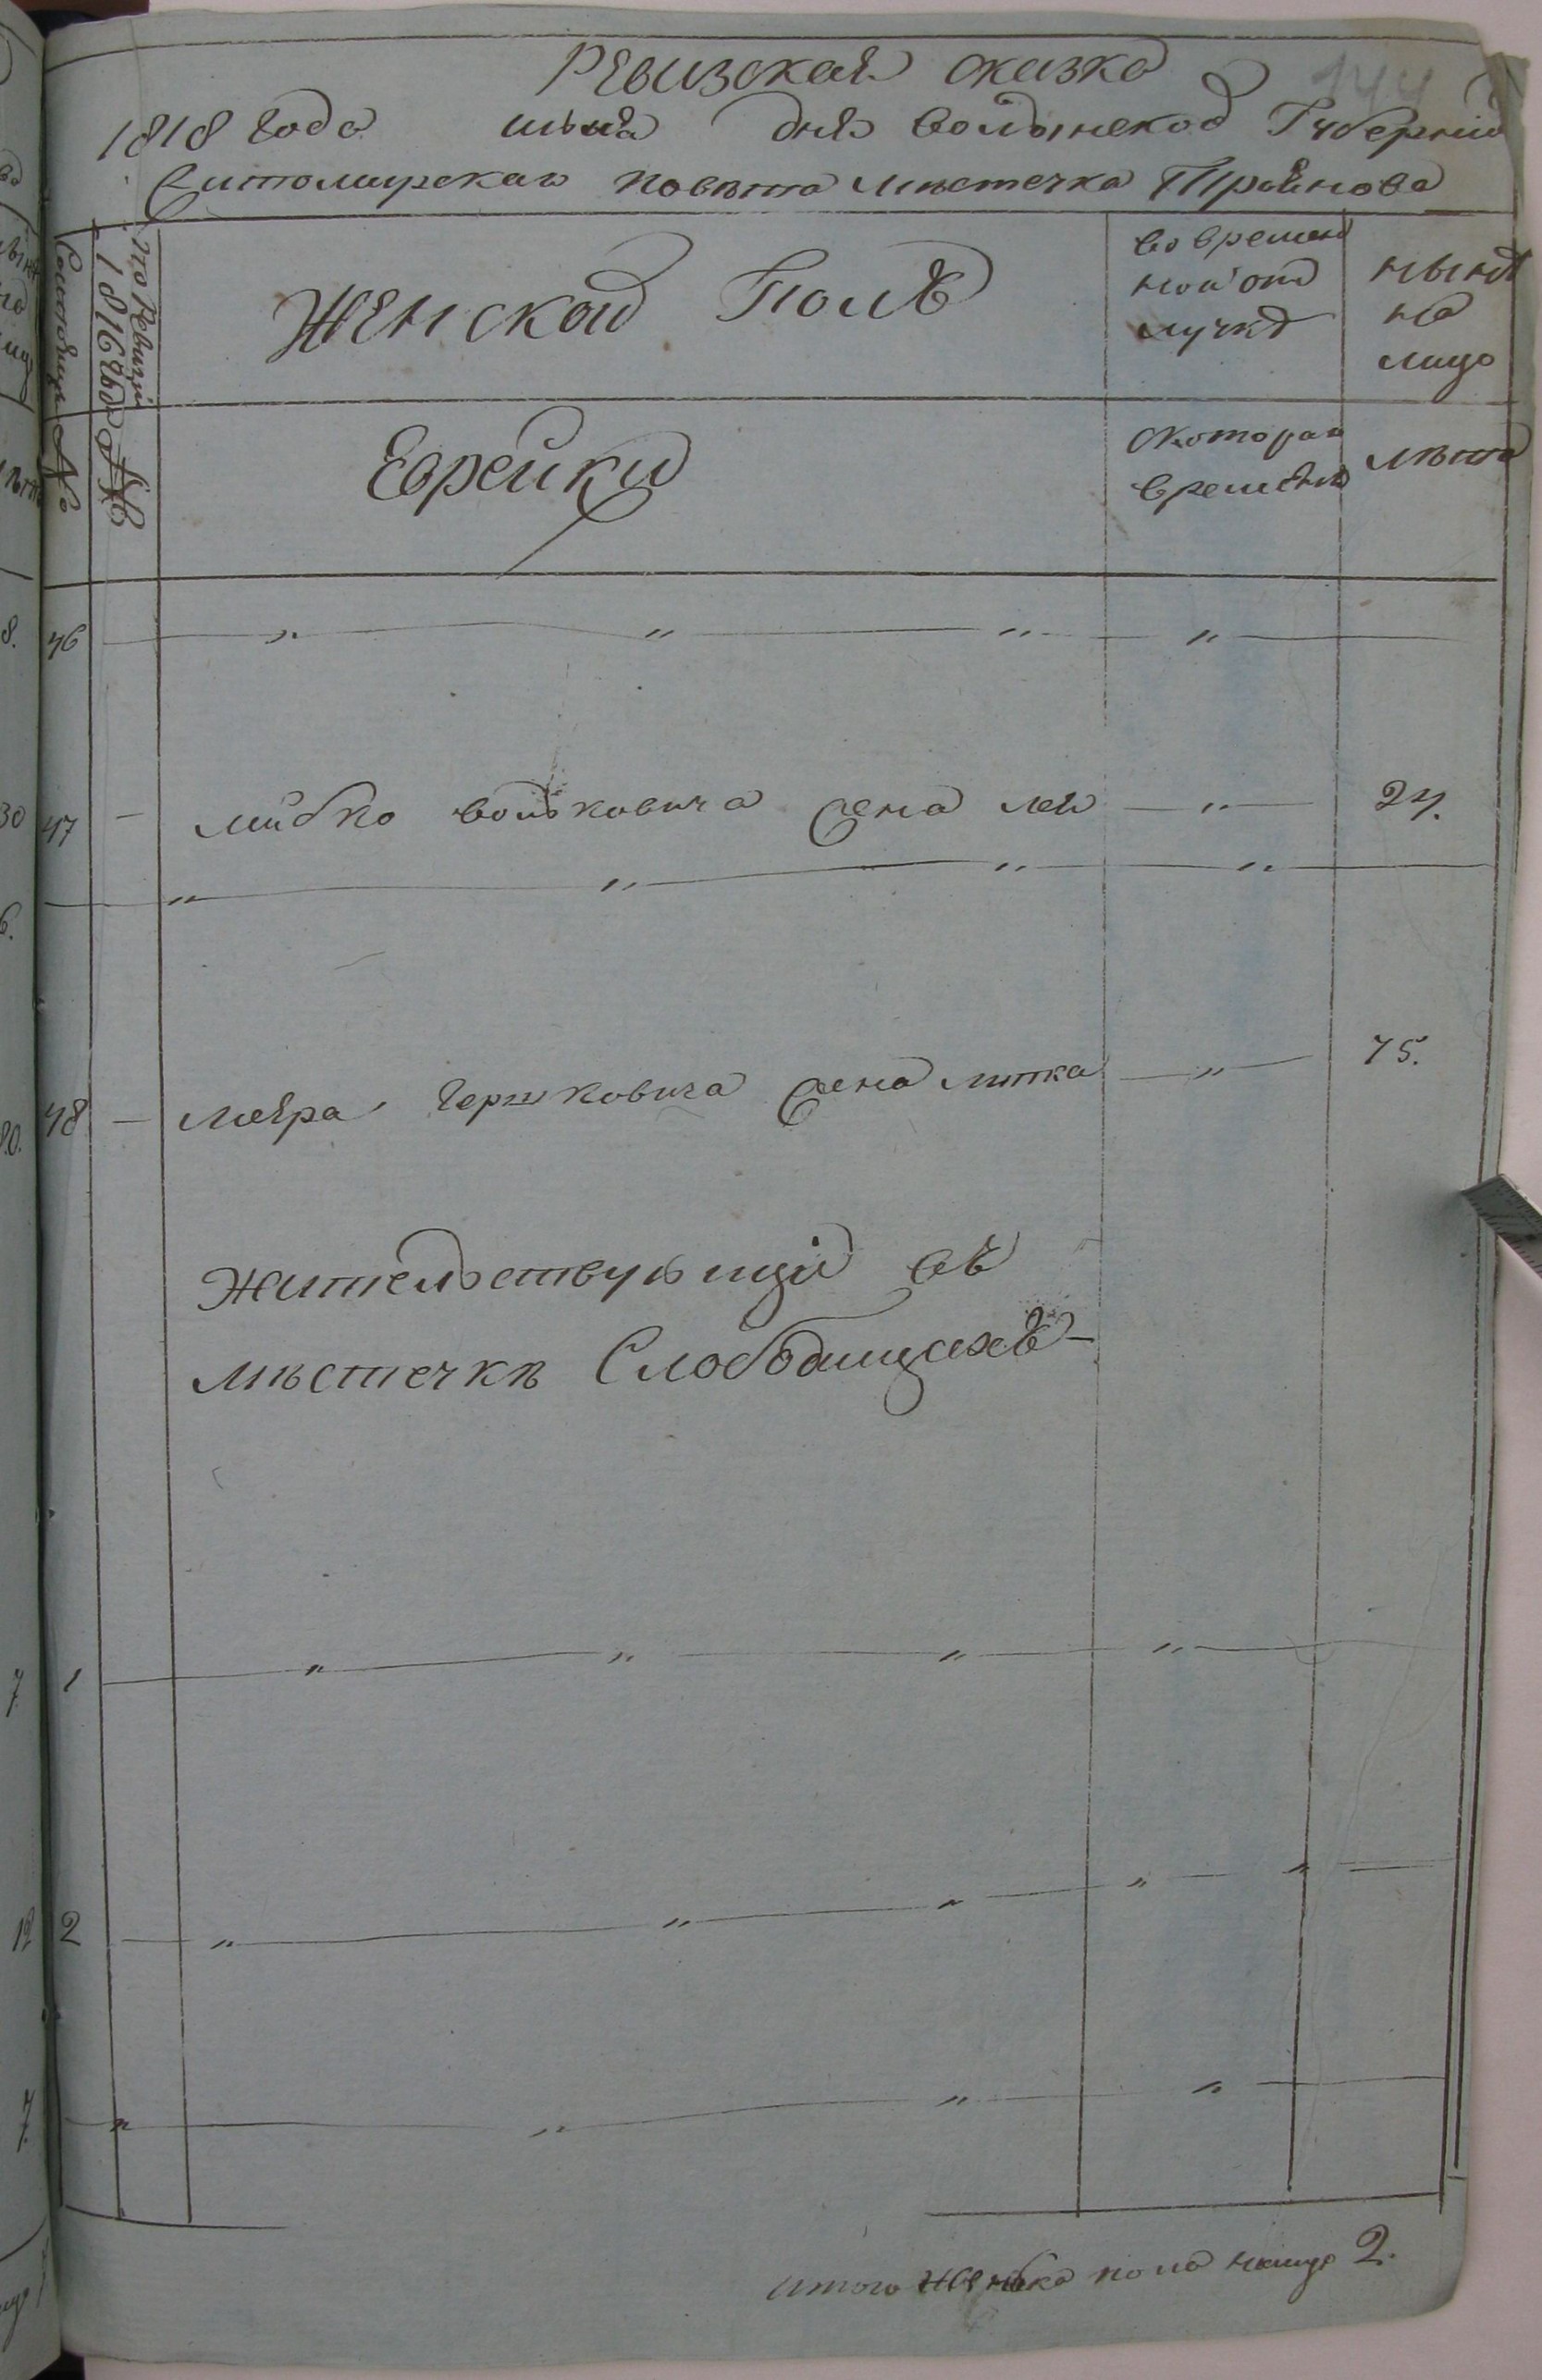 Ревизская сказка
144
1818 Года мѣсяца дня Волынской Губернiи
Житомирскаго повѣта мѣстечка Троянова
Состоящiя №
по Ревизiи 1816 года №
Женской Полъ
во времен
ной от
лучкѣ
нынѣ
на
лицо
Еврейки
с котораго
времѣни
лѣта
46 — " — " — " — " —
47 — Лейбко Волковича жена Лея — " — 24.
" — " — " — "
48 — Меэра Гершковича жена Литка — " — 75.
Жительствующiя въ
мѣстечкѣ Слободищахъ
1 — " — " — " — " —
2 — " — " — " — " — " —
" — " — " — " —
Итого женска пола налицо 2.